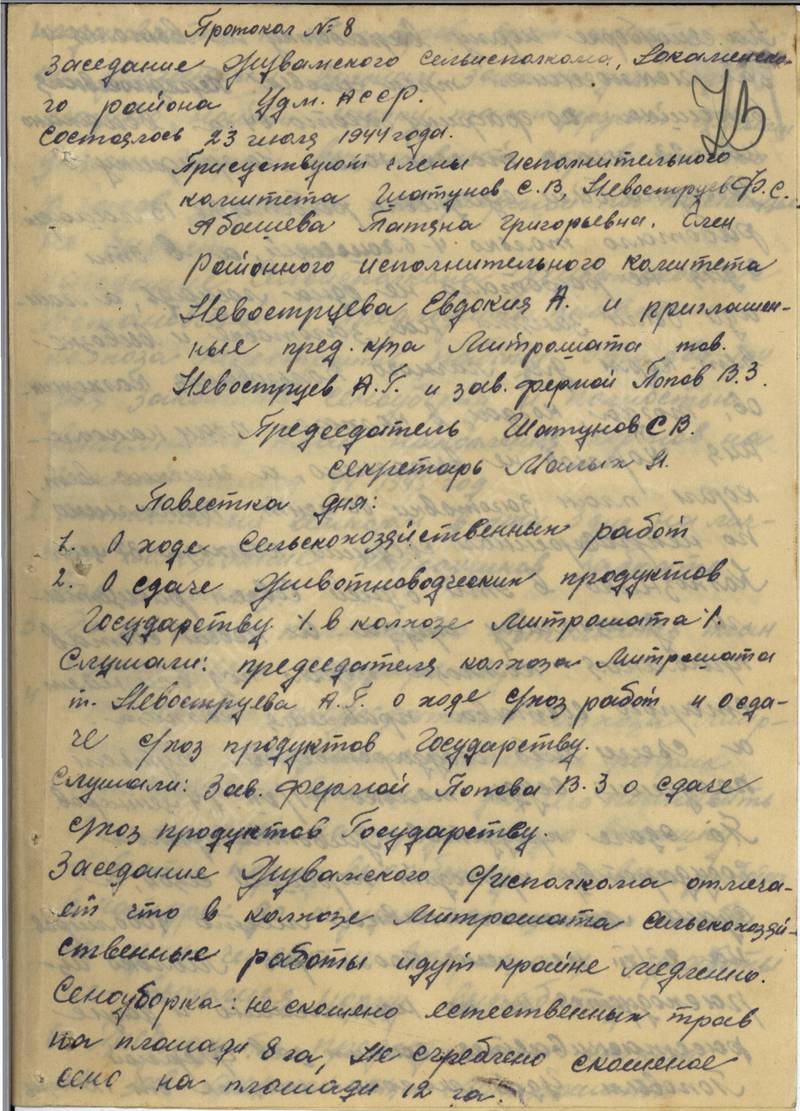 Протокол № 8
заседание Жувамского сельисполкома,
го района Удм. АССР.
Состоялось 23 июля 1944 года.
73
Присуствуют члены исполнительного
комитета Шатунов С.В, Невоструев Ф.С.
Абашева Татяна Григорьевна. Член
районного исполнительного комитета
Невоструева Евдокия А. и приглашен-
ные пред. к/за Митрошата тов.
Невоструев А.Г. и зав. фермой Попов В.З.
Председатель Шатунов С В.
секретарь Малых Н.
Повестка дня:
1. О ходе сельскохозяйственных работ
2. О сдаче животноводческих продуктов
Государству /. в колхозе Митрошата /.
Слушали: председателя колхоза Митрошата
т. Невоструева А.Г. о ходе с/хоз работ и о сда-
че с/хоз продуктов Государству.
Слушали: Зав. фермой Попова В.З о сдаче
с/хоз продуктов Государству.
Заседание Жувамского с/исполкома отмеча-
ет что в колхозе Митрошата сельскохозяй-
ственные работы идут крайне медленно.
Сеноуборка: не скошено естественных трав
на площади 8 га, Не сгребчено скошеное
сено на площади 12 га.